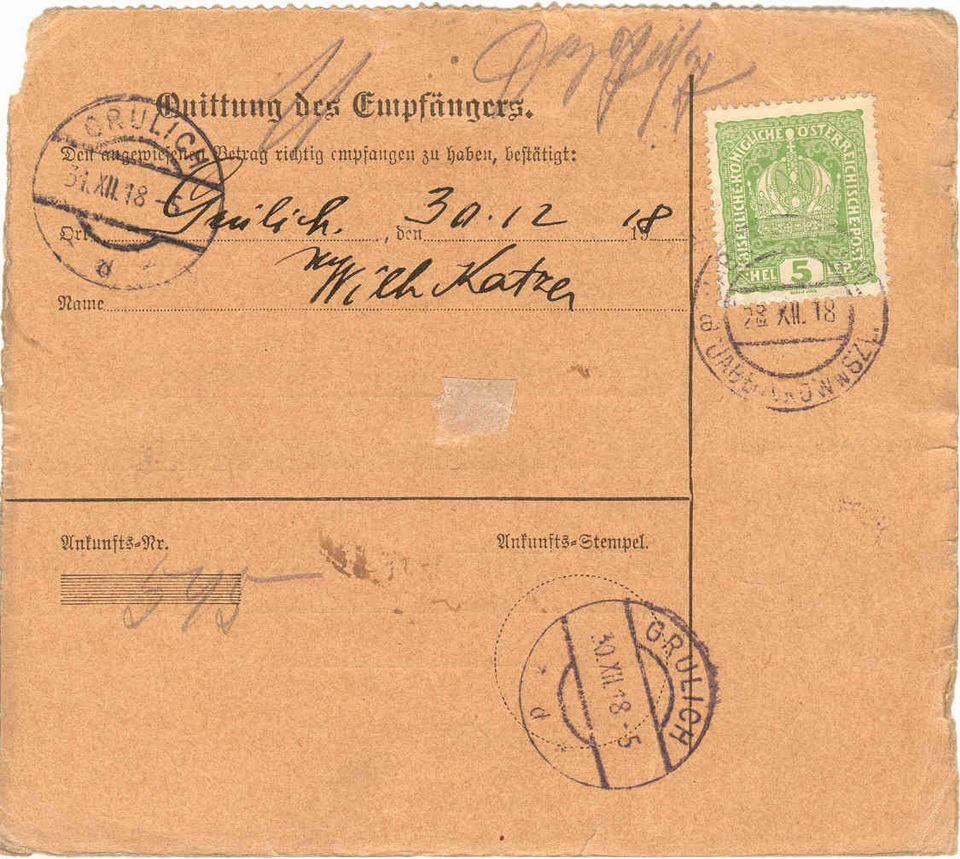 Quittung des Empfängers.
Den angewiesenen Betrag richtig empfangen zu haben, bestätigt:
GRULICH
31.XII.18-6
d
Ort Grulich., den 30.12 1918
Name Wilh Katzer
KAISERLICHE·KÖNIGLICHE ÖSTERREICHISCHE·POST
HEL 5 LEP.
28 XII. 18
a
Ankunfts-Nr.
545
Ankunfts-Stempel.
GRULICH
30.XII.18-5
d